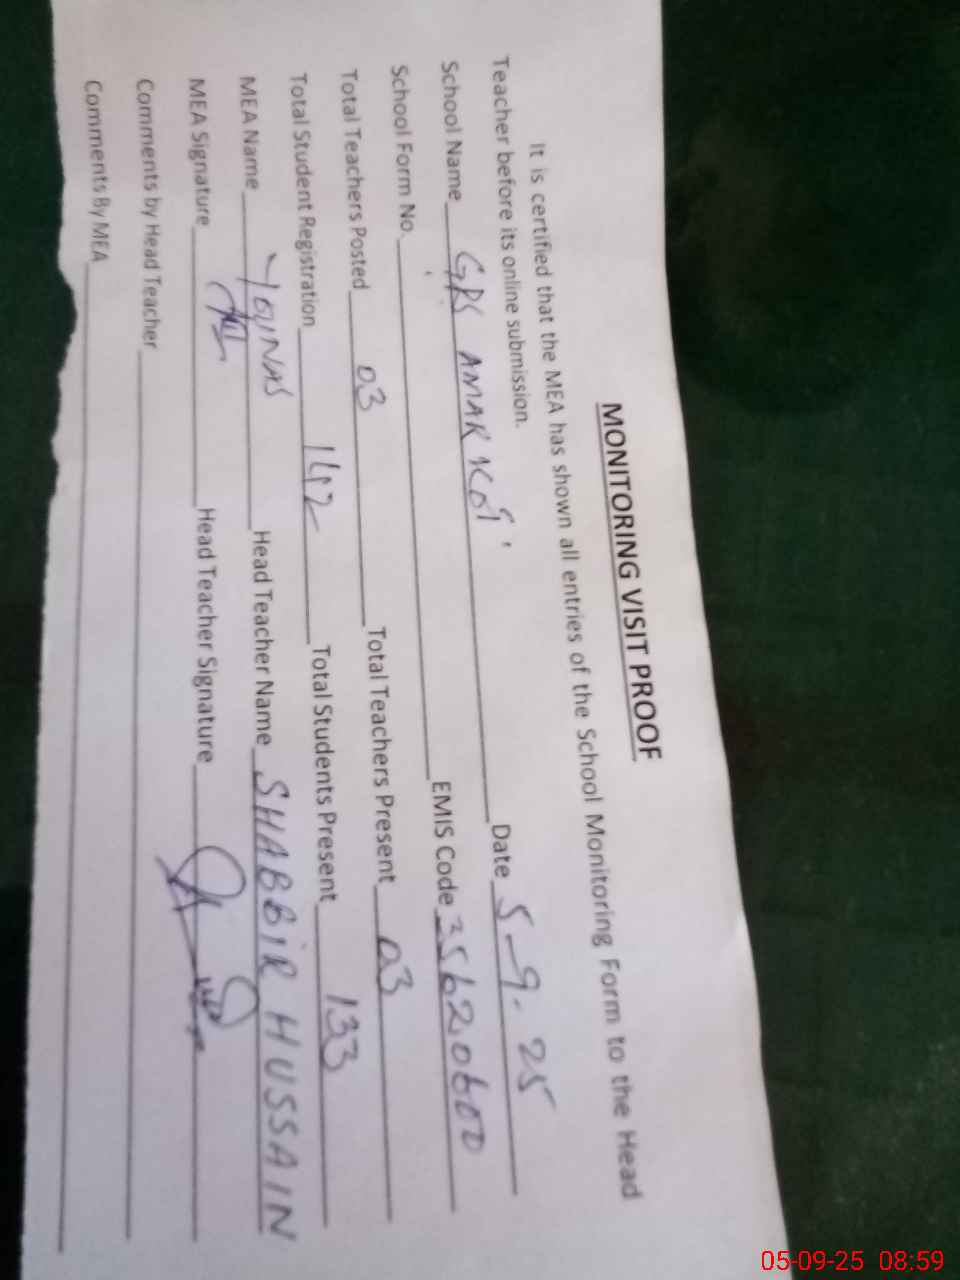 MONITORING VISIT PROOF
It is certified that the MEA has shown all entries of the School Monitoring Form to the Head
Teacher before its online submission.
School Name GPS AMAK KOT Date 5-9-25
School Form No. EMIS Code 35620600
Total Teachers Posted 03 Total Teachers Present 03
Total Student Registration 142 Total Students Present 133
MEA Name YOUNAS Head Teacher Name SHABBIR HUSSAIN
MEA Signature Head Teacher Signature
Comments by Head Teacher
Comments By MEA
05-09-25 08:59